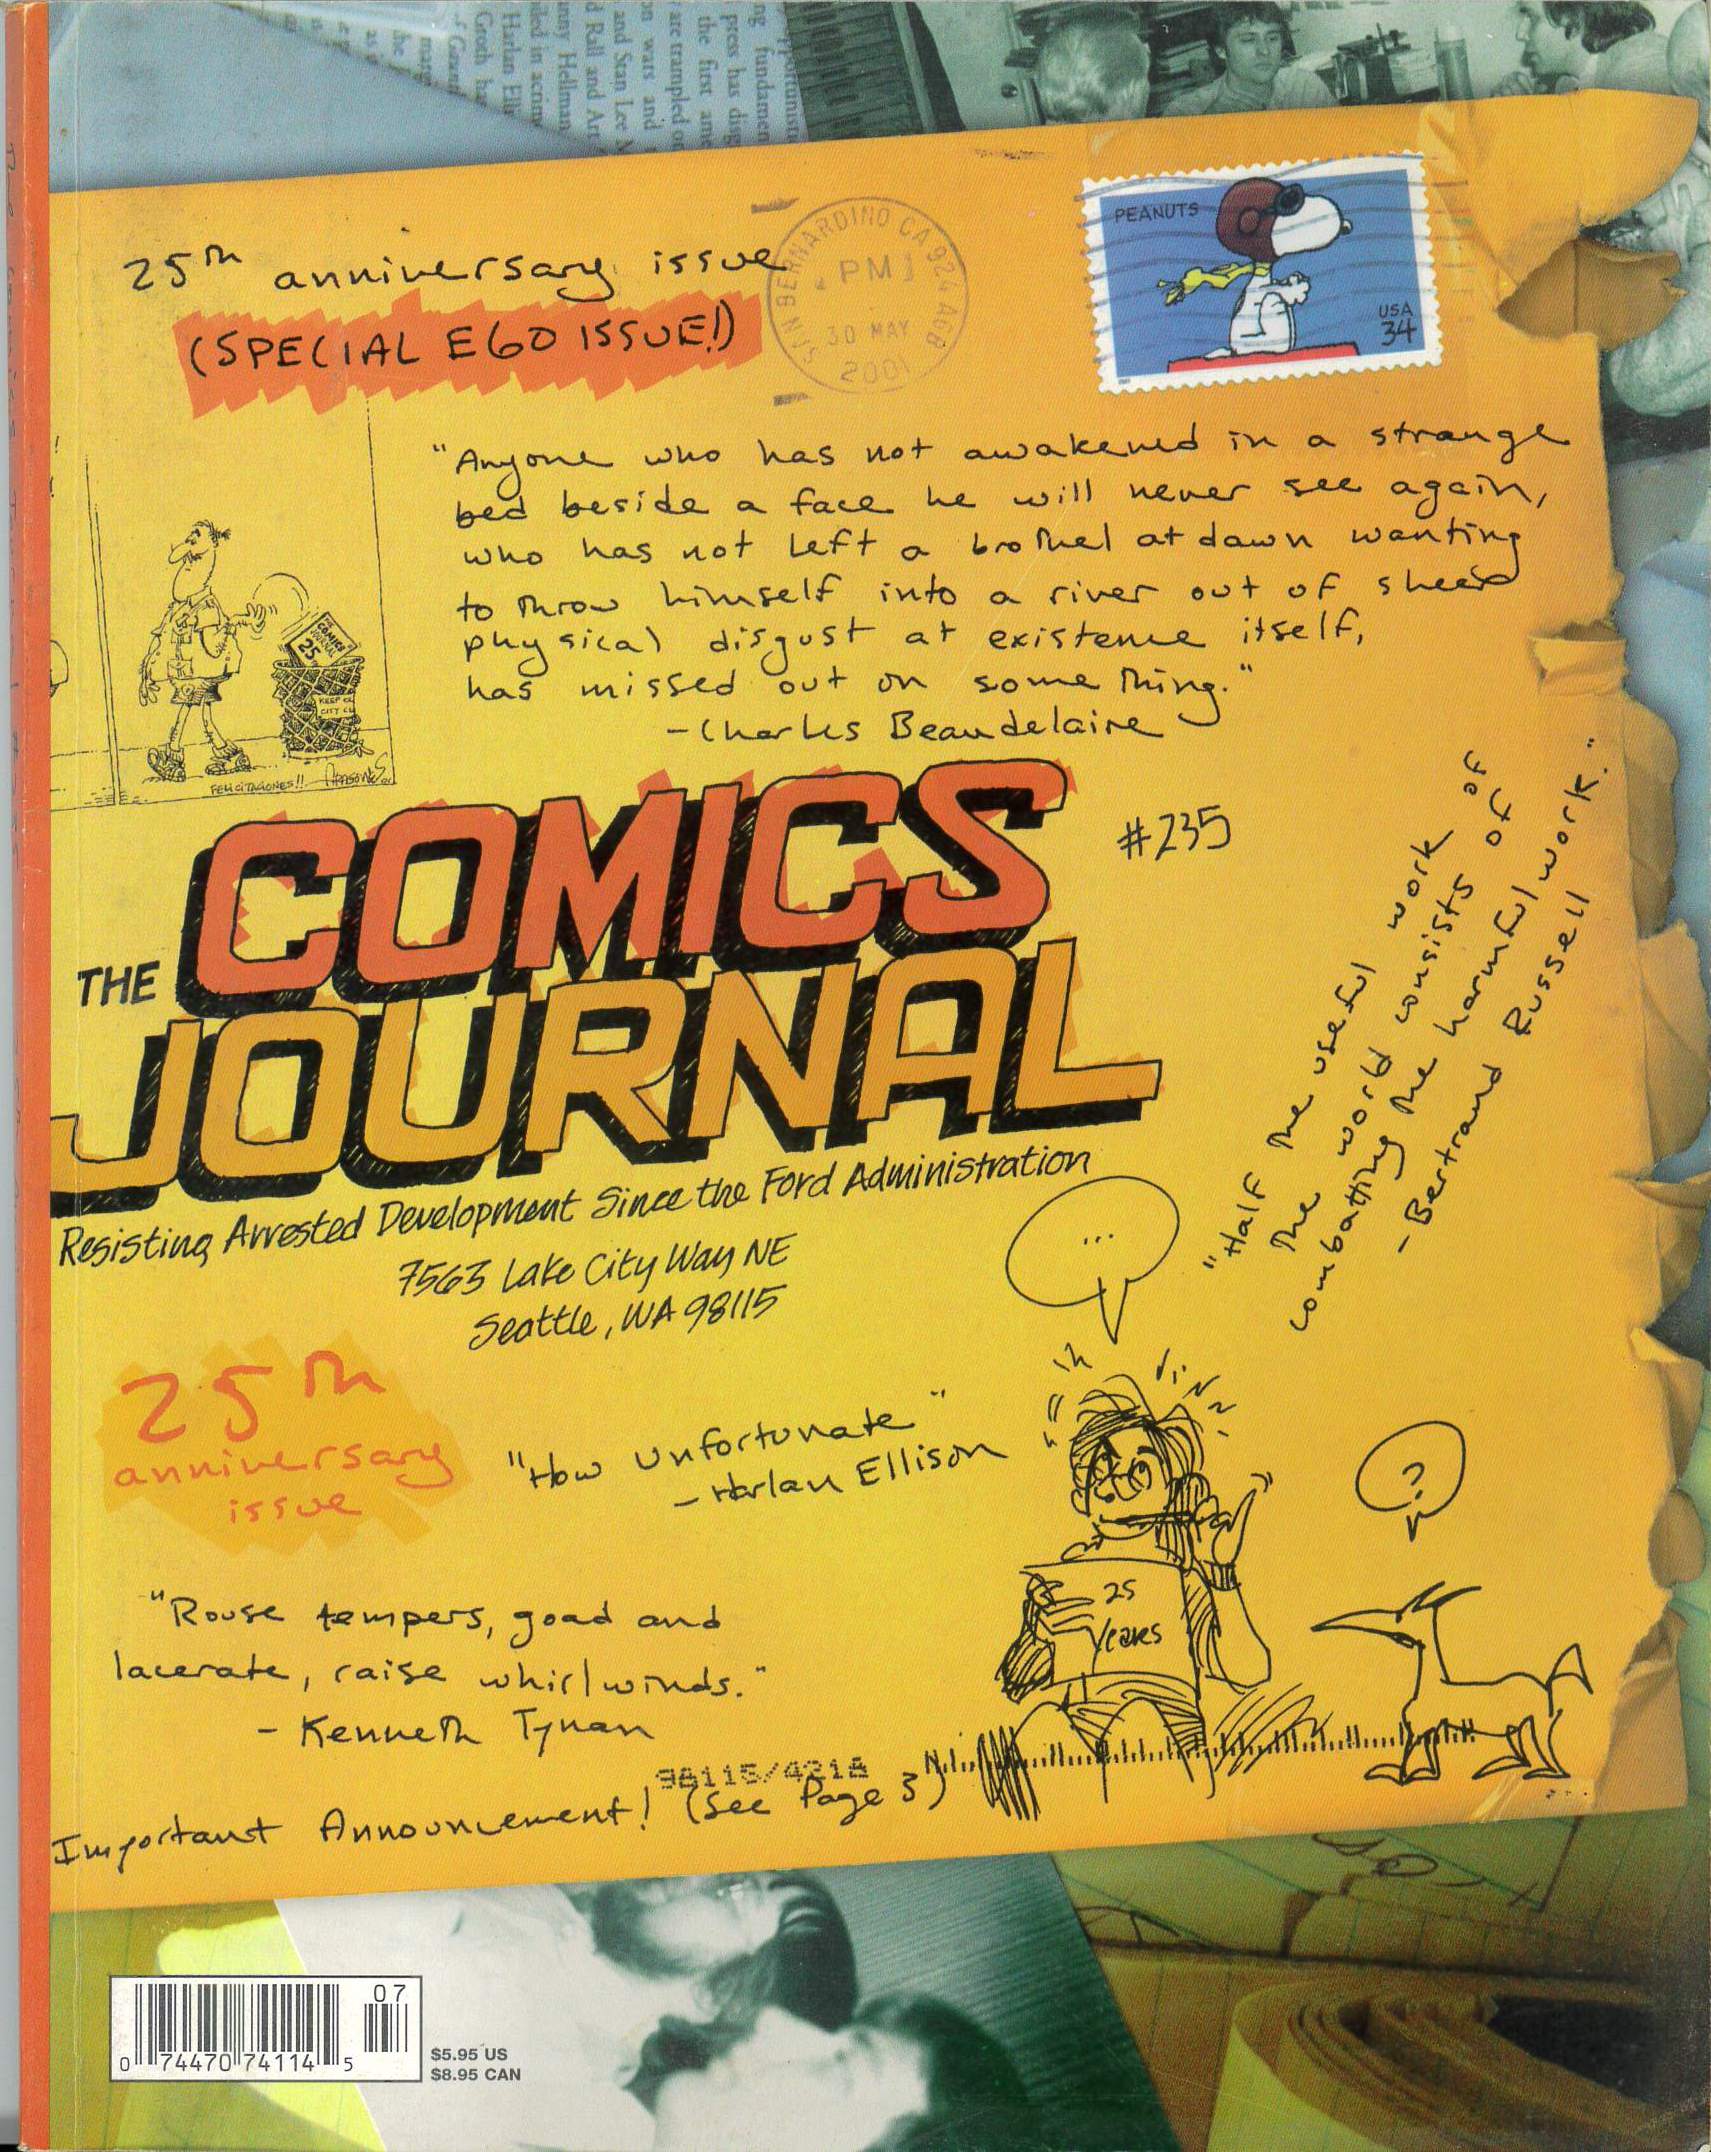 ng fundamen
press has disg
the first ame
are trampled o
on wars and
and Stan Lee M
d Rall and Art
nny Hellman
Harlan Elli
Groth ha
PEANUTS
USA
34
SAN BERNARDINO CA 924 AGB
PM
30 MAY
2001
25th anniversary issue
(SPECIAL EGO ISSUE!)
"Anyone who has not awakened in a strange
bed beside a face he will never see again,
who has not left a brothel at dawn wanting
to throw himself into a river out of sheer
physical disgust at existence itself,
has missed out on something."
-Charles Beaudelaire
THE COMICS JOURNAL
25
KEEP
CITY CL
FELICITACIONES!!
ARAGONES
THE COMICS
JOURNAL
#235
Resisting Arrested Development Since the Ford Administration
7563 Lake City Way NE
Seattle, WA 98115
"Half the useful work of
the world consists of
combatting the harmful work."
-Bertrand Russell
25th
anniversary
issue
"How unfortunate"
-Harlan Ellison
...
?
25
Years
"Rouse tempers, goad and
lacerate, raise whirlwinds."
- Kenneth Tynan
98115/4218
Important Announcement! (See Page 3)
07
0 74470 74114 5
$5.95 US
$8.95 CAN